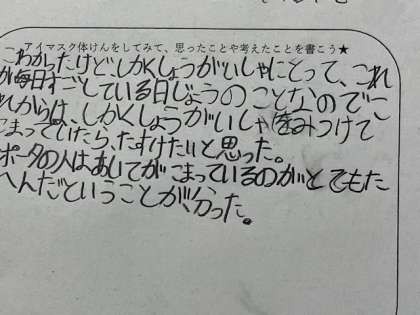 アイマスク体けんをしてみて、思ったことや考えたことを書こう★
こわかったけど、しかくしょうがいしゃにとって、これ
が毎日すごしている日じょうのことなのでこ
れからは、しかくしょうがいしゃをみつけて
こまっていたら、たすけたいと思った。
ポータの人はあいてがこまっているのがとてもた
へんだということが、分った。